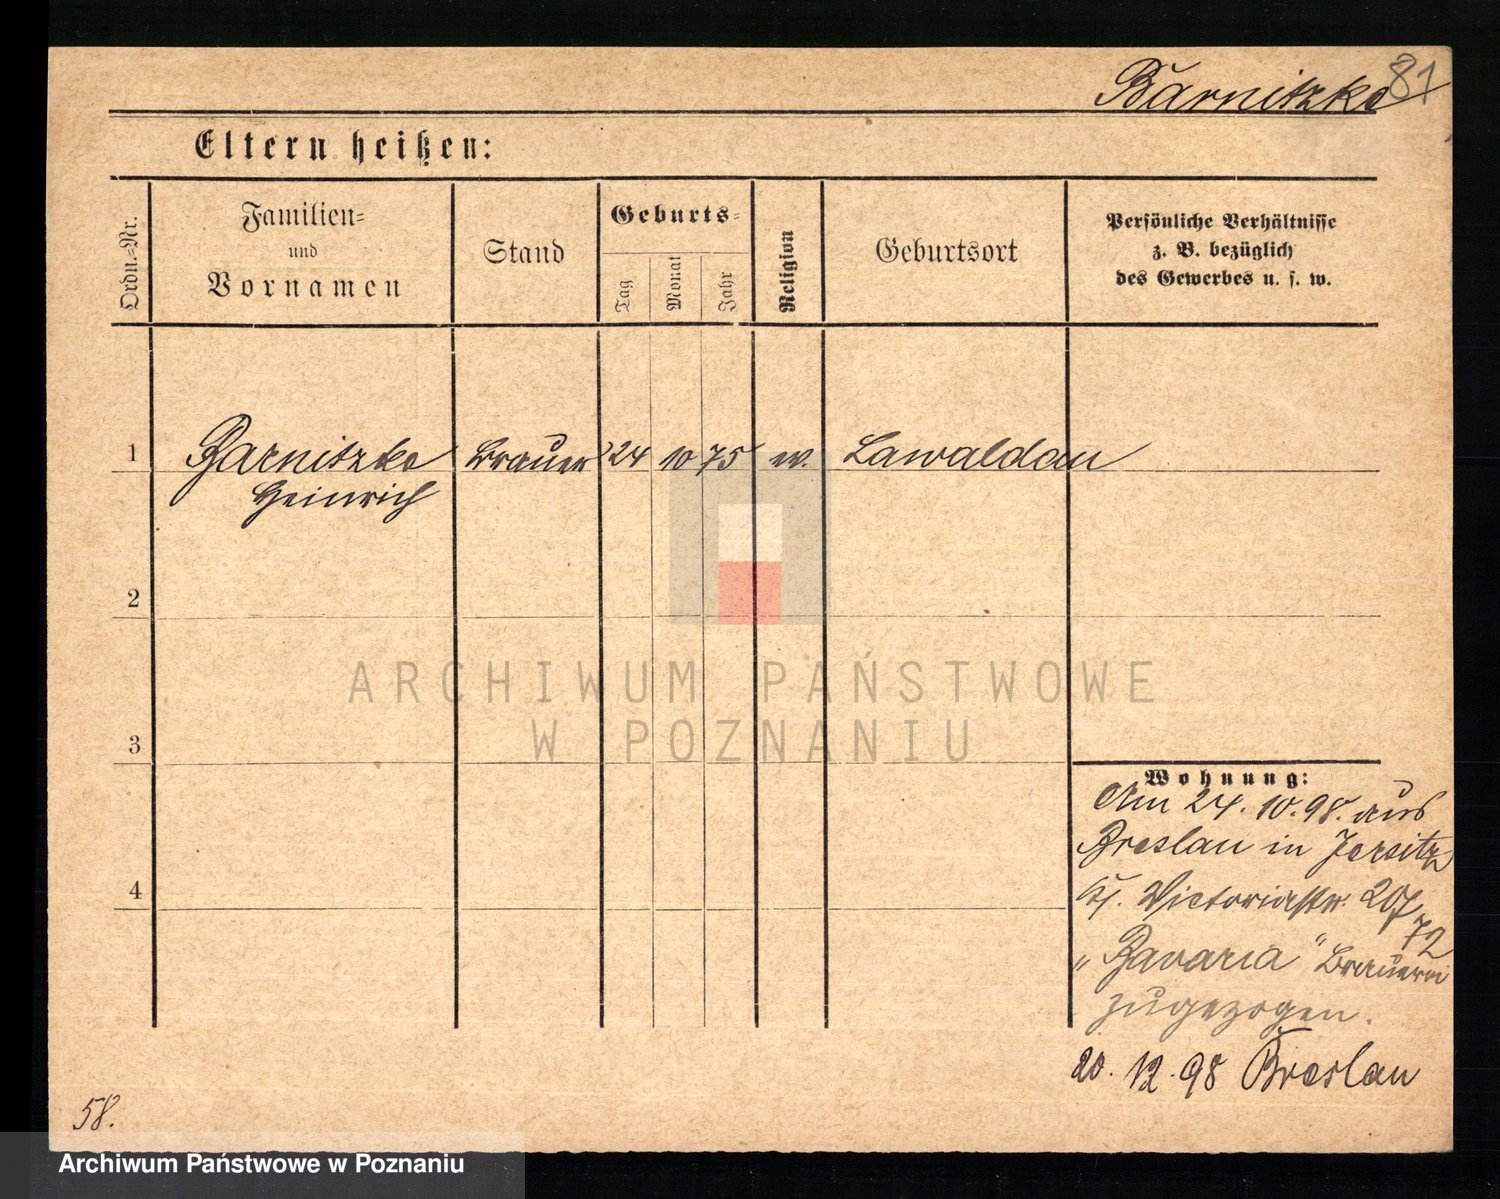 Barnitzke 81
Eltern heißen:
Ordn.=Nr.
Familien=
und
Vornamen
Stand
Geburts=
Tag
Monat
Jahr
Religion
Geburtsort
Persönliche Verhältnisse
z. B. bezüglich
des Gewerbes u. s. w.
1 Barnitzke Brauer 24 10 75 ev. Lawaldau
Heinrich
2
ARCHIWUM PAŃSTWOWE
W POZNANIU
3
Wohnung:
Am 24.10.98. aus
Breslau in Jersitz
Victoriastr. 20/
72
4
"Bavaria" Brauerei
zugezogen.
20.12.98 Breslau
58.
Archiwum Państwowe w Poznaniu